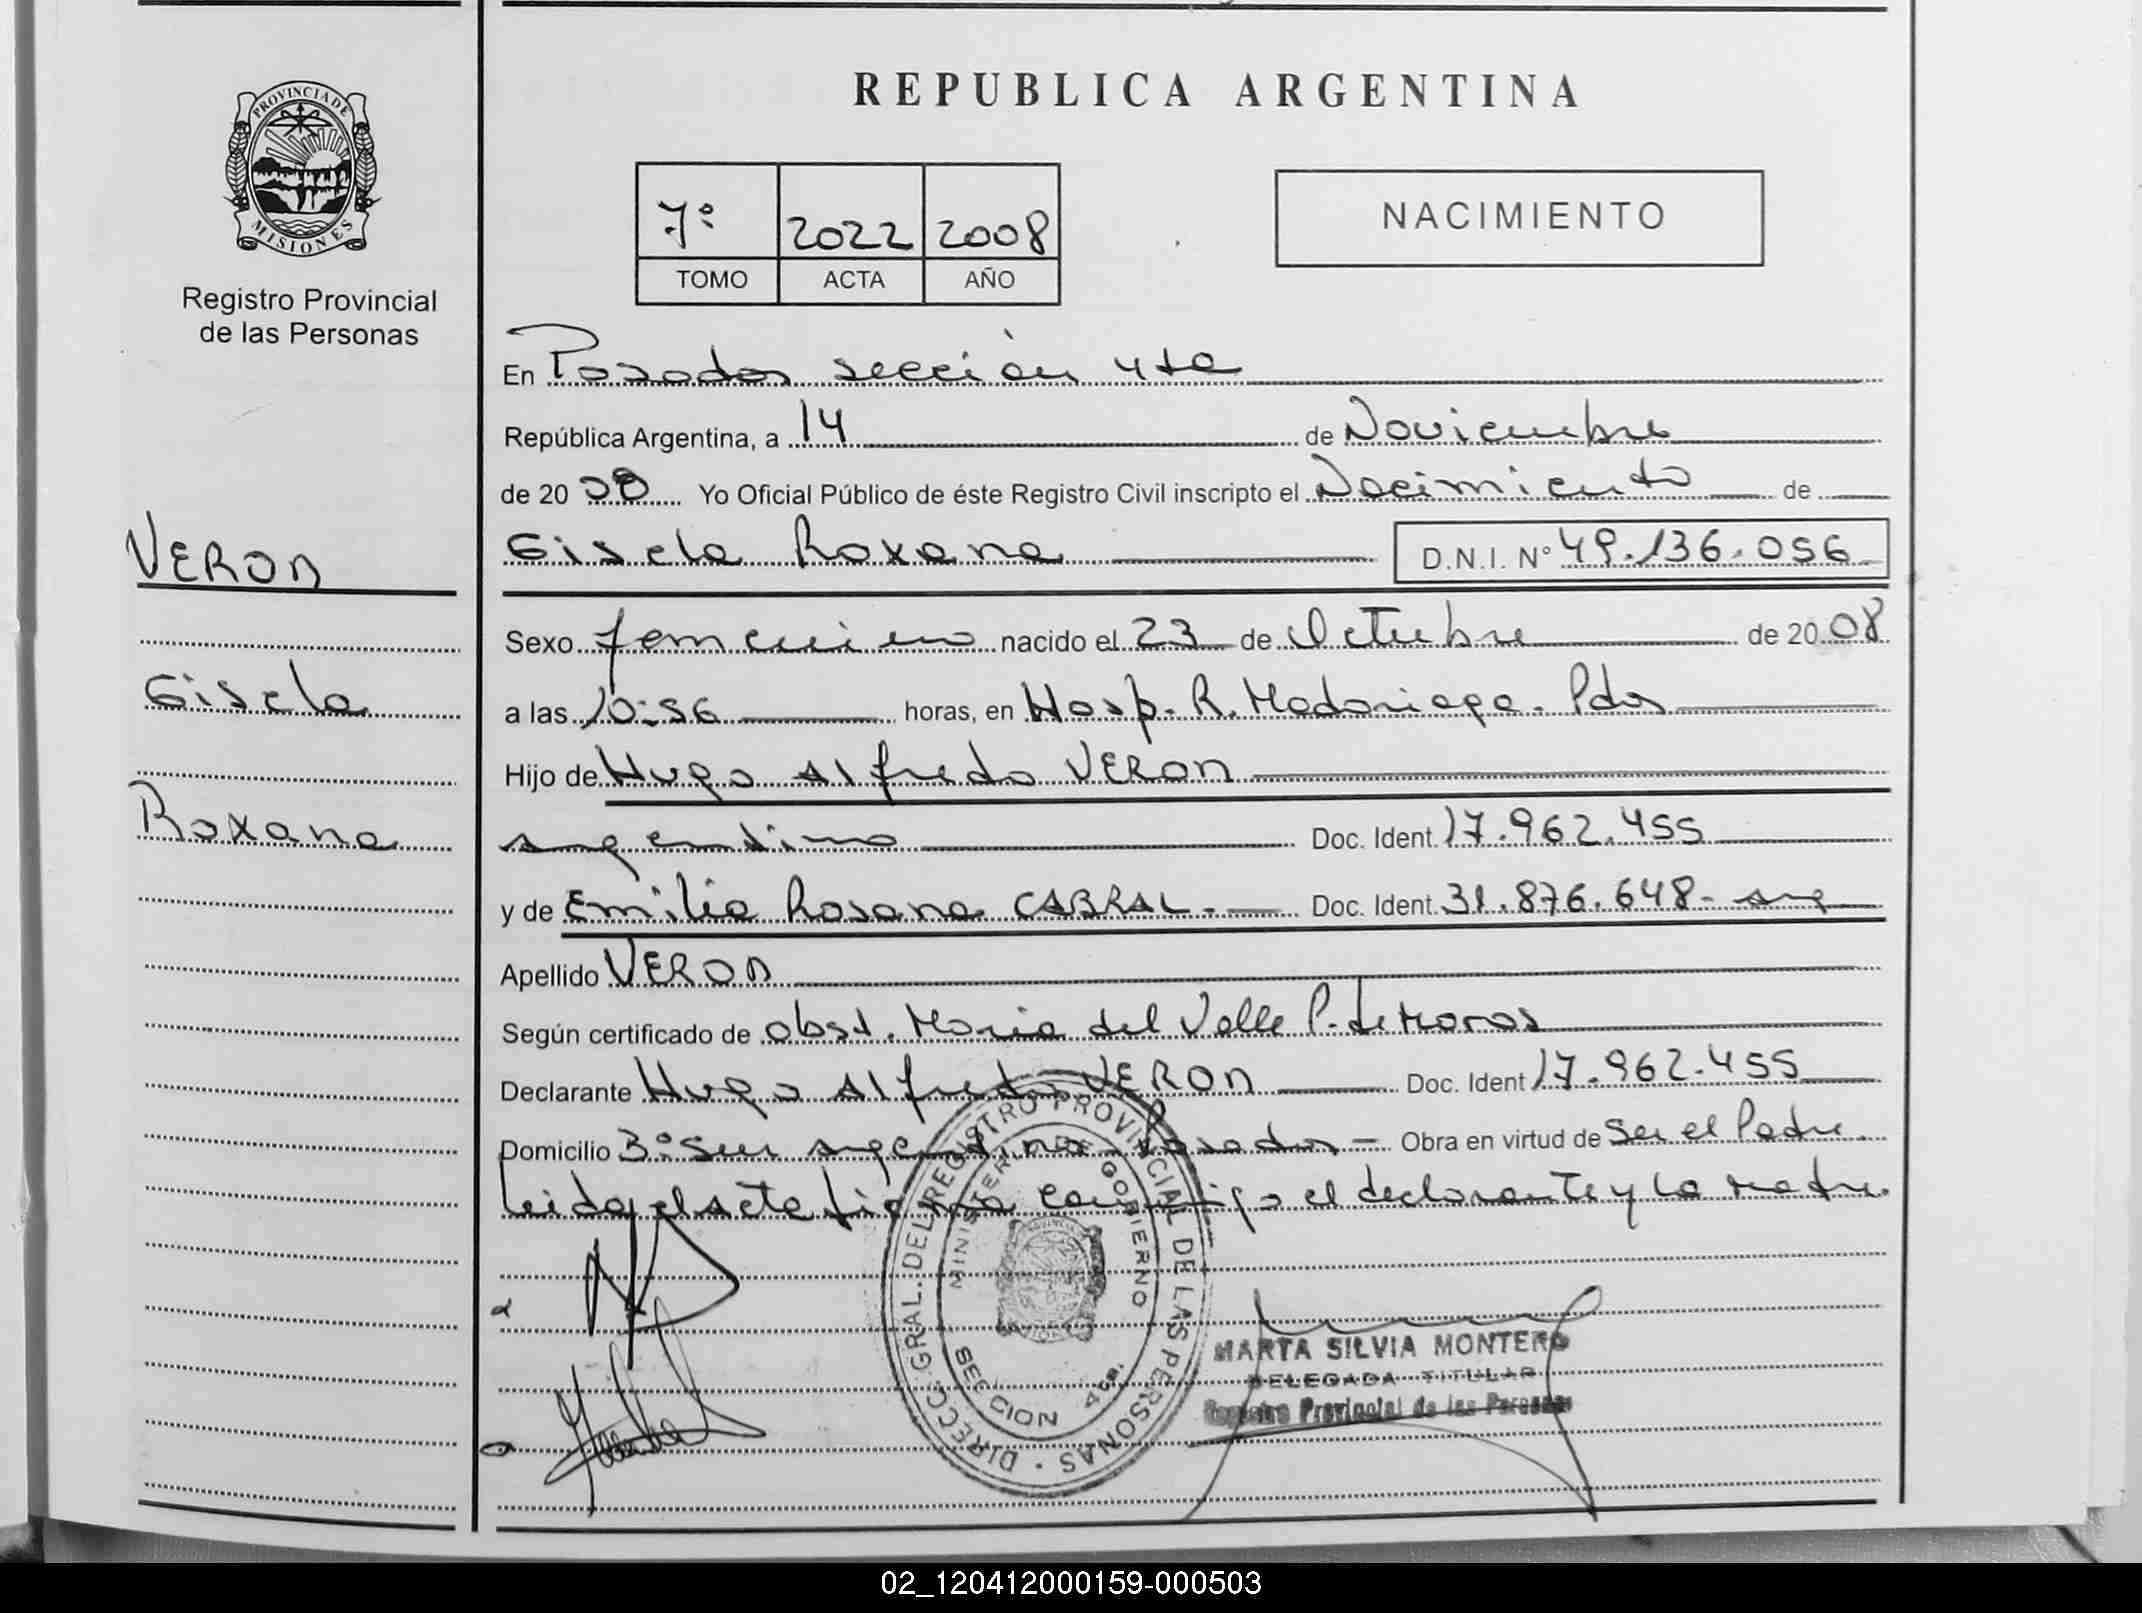 REPUBLICA ARGENTINA
PROVINCIA DE
MISIONES
Registro Provincial
de las Personas
7º 2022 2008
TOMO ACTA AÑO
NACIMIENTO
En Posadas sección 4ta
República Argentina, a 14 de Noviembre
de 20 08 Yo Oficial Público de éste Registro Civil inscripto el Nacimiento de
Gisela Roxana D.N.I. Nº 49.136.056
VERON
Gisela
Roxana
Sexo femenino nacido el 23 de Octubre de 20 08
a las 10:56 horas, en Hosp. R. Madariaga. Pdas
Hijo de Hugo Alfredo VERON
argentino Doc. Ident. 17.962.455
y de Emilia Rosana CABRAL.- Doc. Ident. 31.876.648- arg
Apellido VERON
Según certificado de obst. Maria del Valle P. de Moras
Declarante Hugo Alfredo VERON Doc. Ident 17.962.455
Domicilio 3º Sur argentina Posadas - Obra en virtud de ser el Padre.
Leida el acta firma conmigo el declarante y la madre.
DIRECC. GRAL. DEL REGISTRO PROVINCIAL DE LAS PERSONAS
MINISTERIO DE GOBIERNO
SECCION 4ta.
MARTA SILVIA MONTERO
DELEGADA TITULAR
Registro Provincial de las Personas
02_120412000159-000503